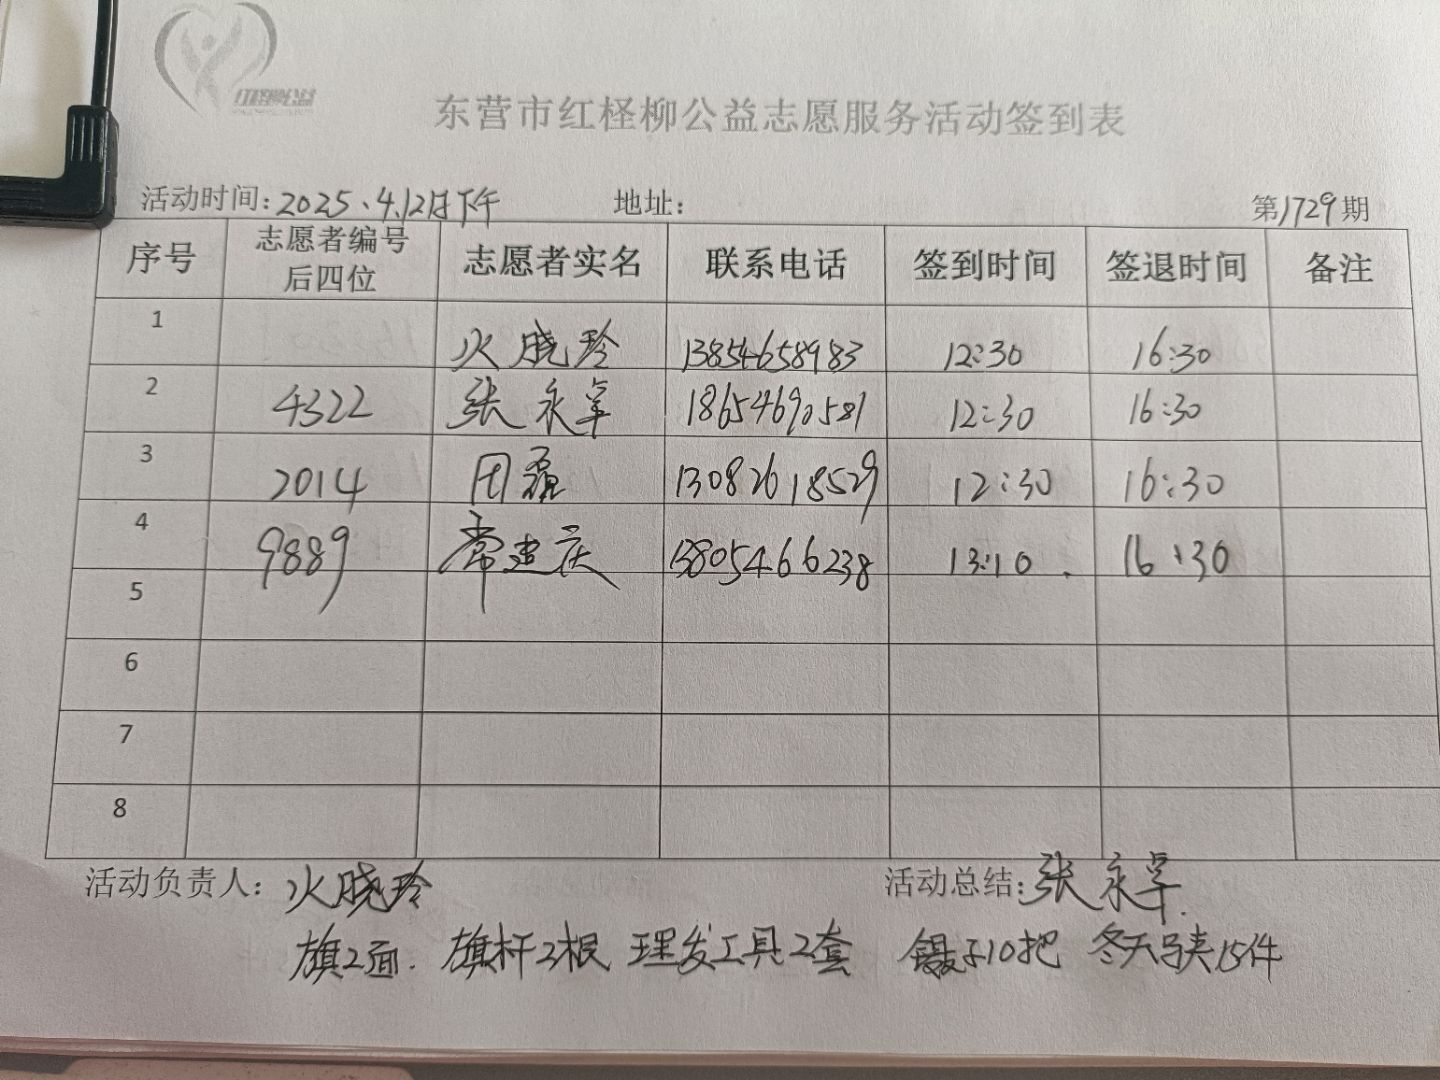 红柽柳公益
东营市红柽柳公益志愿服务活动签到表
活动时间：2025、4.12日下午 地址： 第1729期
序号 志愿者编号后四位 志愿者实名 联系电话 签到时间 签退时间 备注
1 火晓玲 13854658983 12:30 16:30
2 4322 张永军 18654690581 12:30 16:30
3 2014 田磊 13082618529 12:30 16:30
4 9889 常建庆 13805466238 13:10 16:30
5
6
7
8
活动负责人：火晓玲 活动总结：张永军
旗2面. 旗杆2根 理发工具2套 镊子10把 冬天马夹15件